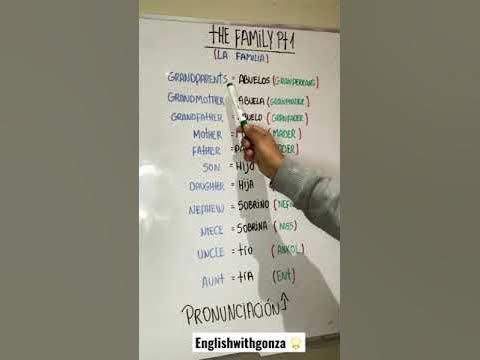 THE FAMILY Pt1
(LA FAMILIA)
GRANDPARENTS = ABUELOS (GRANDPERRENS)
GRANDMOTHER = ABUELA (GRANMODER)
GRANDFATHER = ABUELO (GRANFADER)
MOTHER = (MADER)
FATHER =
SON = HIJO
DAUGHTER = HIJA
NEPHEW = SOBRINO (NEF
NIECE = SOBRINA (NIES)
UNCLE = TÍO (ANKOL)
AUNT = TÍA (ENT)
PRONUNCIACIÓN
Englishwithgonza